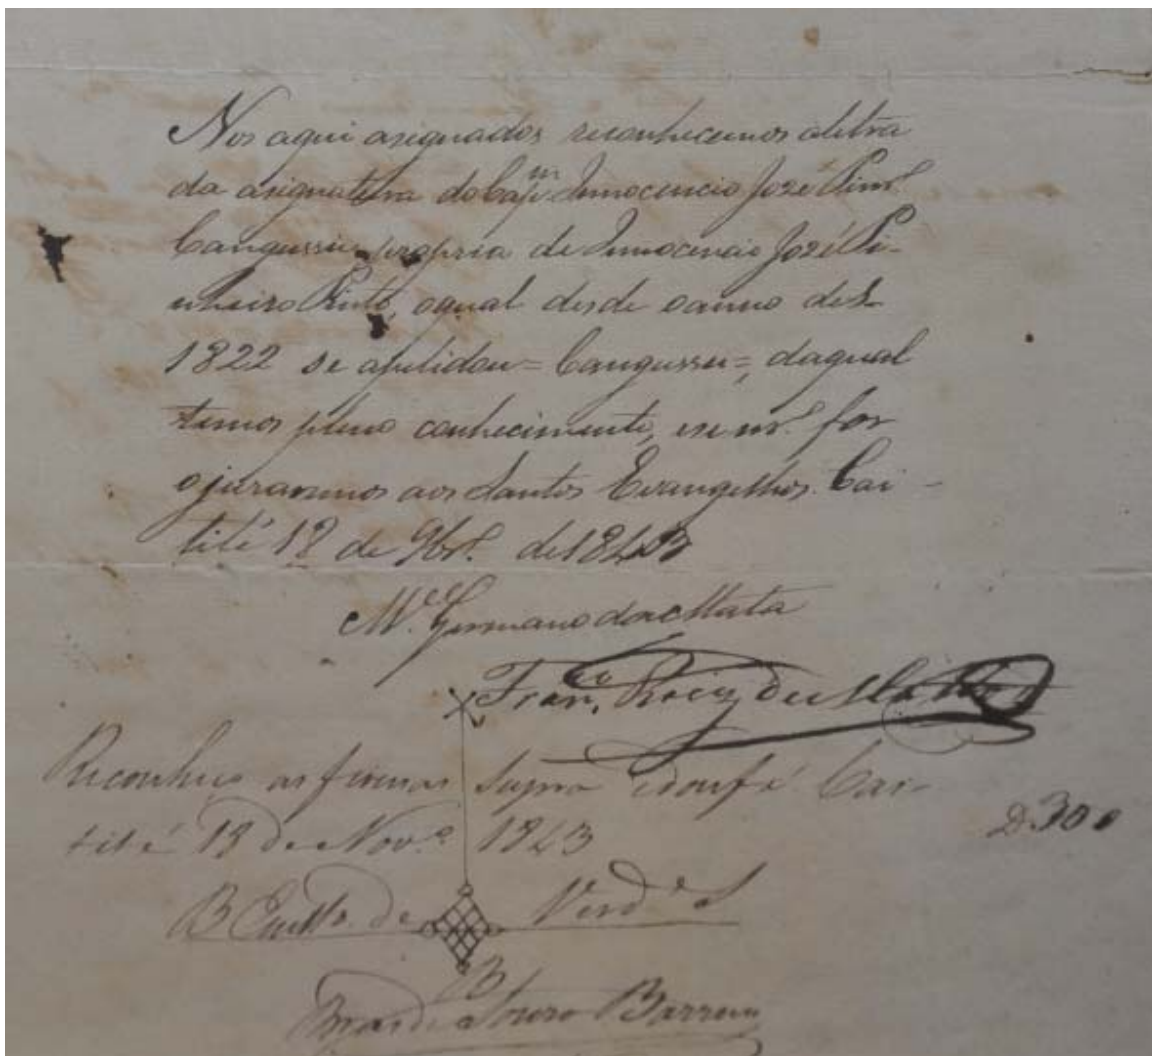 Nos aqui asignados reconhecemos aletra
da asignatura do Capm. Innocencio José Pinrº
Cangussu propria de Innocencio José Pi-
nheiro Pinto, oqual desde o anno de
1822 se apelidou = Cangussu =, daqual
temos pleno conhecimento, ese nr.º for
ojuraremos aos Santos Evangelhos. Cai-
tité 18 de 9brº. de 1843
Mel. Germano da Matta
Franco. Roiz de
Reconheço as firmas supra edoufé Cai-
tité 18 de Novº 1843
D. 300
Em Tº. de Verdе
B
Braz de Souza Barros